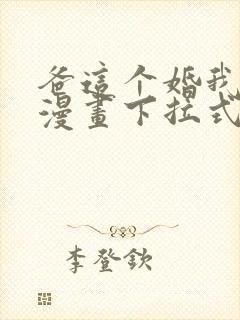 爸這个婚我
漫畫下拉式
李登欽